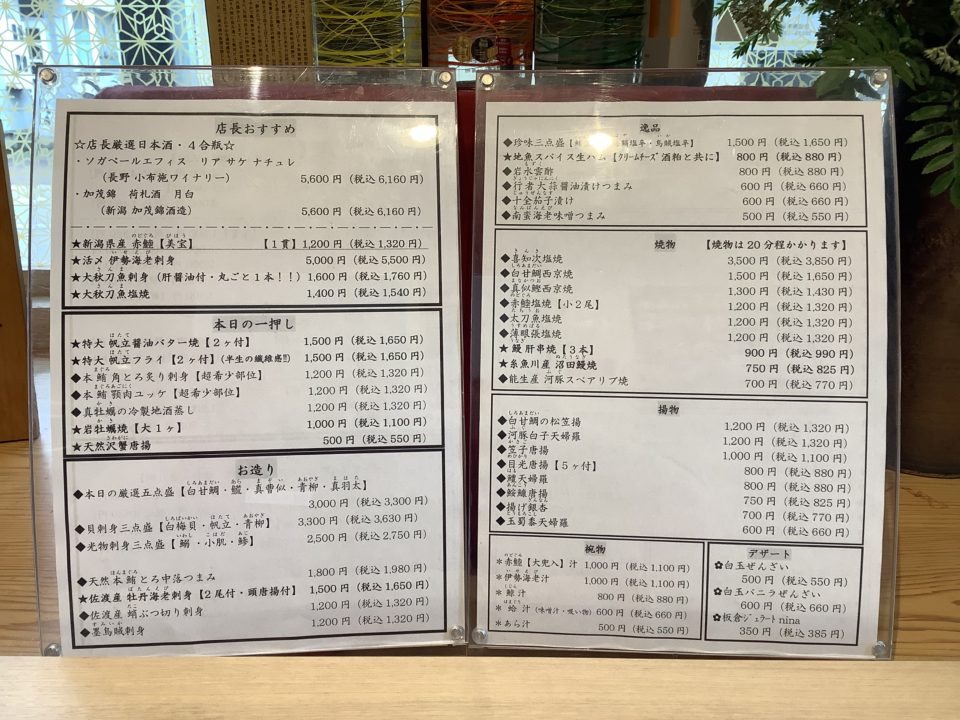 店長おすすめ
☆店長厳選日本酒・４合瓶☆
・ソガペールエフィス リア サケ ナチュレ
（長野 小布施ワイナリー） 5,600円（税込6,160円）
・加茂錦 荷札酒 月白
（新潟 加茂錦酒造） 5,600円（税込6,160円）
★新潟県産 赤鯥【美宝】 【１貫】1,200円（税込1,320円）
★活〆 伊勢海老刺身 5,000円（税込5,500円）
★大秋刀魚刺身（肝醤油付・丸ごと１本！！）1,600円（税込1,760円）
★大秋刀魚塩焼 1,400円（税込1,540円）
本日の一押し
★特大 帆立醤油バター焼【２ヶ付】 1,500円（税込1,650円）
★特大 帆立フライ【２ヶ付】（半生の繊維癌!!） 1,500円（税込1,650円）
◆本鮪 角とろ炙り刺身【超希少部位】 1,200円（税込1,320円）
◆本鮪 顎肉ユッケ【超希少部位】 1,200円（税込1,320円）
◆真牡蠣の冷製地酒蒸し 1,200円（税込1,320円）
★岩牡蠣焼【大１ヶ】 1,000円（税込1,100円）
★天然沢蟹唐揚 500円（税込550円）
お造り
◆本日の厳選五点盛【白甘鯛・䱋・真曹以・青柳・真羽太】
3,000円（税込3,300円）
◆貝刺身三点盛【白梅貝・帆立・青柳】 3,300円（税込3,630円）
◆光物刺身三点盛【鰯・小肌・鯵】 2,500円（税込2,750円）
◆天然本鮪とろ中落つまみ 1,800円（税込1,980円）
★佐渡産 牡丹海老刺身【２尾付・頭唐揚付】 1,500円（税込1,650円）
◆佐渡産 蛸ぶつ切り刺身 1,200円（税込1,320円）
◆墨烏賊刺身 1,200円（税込1,320円）
逸品
◆珍味三点盛 塩辛・烏賊塩辛】 1,500円（税込1,650円）
★地魚スパイス生ハム【クリームチーズ 酒粕と共に】 800円（税込880円）
◆岩水雲酢 800円（税込880円）
◆行者大蒜醤油漬けつまみ 600円（税込660円）
◆十全茄子漬け 600円（税込660円）
◆南蛮海老味噌つまみ 500円（税込550円）
焼物 【焼物は20分程かかります】
◆喜知次塩焼 3,500円（税込3,850円）
◆白甘鯛西京焼 1,500円（税込1,650円）
◆真似鰹西京焼 1,300円（税込1,430円）
◆赤鯥塩焼【小２尾】 1,200円（税込1,320円）
◆太刀魚塩焼 1,200円（税込1,320円）
◆薄眼張塩焼 1,200円（税込1,320円）
★鰻肝串焼【３本】 900円（税込990円）
★糸魚川産 沼田鰻焼 750円（税込825円）
◆能生産 河豚スペアリブ焼 700円（税込770円）
揚物
◆白甘鯛の松笠揚 1,200円（税込1,320円）
◆河豚白子天婦羅 1,200円（税込1,320円）
◆笠子唐揚 1,000円（税込1,100円）
◆目光唐揚【５ヶ付】 800円（税込880円）
◆鱧天婦羅 800円（税込880円）
◆鮟鱇唐揚 750円（税込825円）
◆揚げ銀杏 700円（税込770円）
◆玉蜀黍天婦羅 600円（税込660円）
椀物
＊赤鯥【大兜入】汁 1,000円（税込1,100円）
＊伊勢海老汁 1,000円（税込1,100円）
＊鯨汁 800円（税込880円）
＊蛤汁（味噌汁・吸い物）600円（税込660円）
＊あら汁 500円（税込550円）
デザート
✿白玉ぜんざい
500円（税込550円）
✿白玉バニラぜんざい
600円（税込660円）
✿板倉ジェラートnina
350円（税込385円）